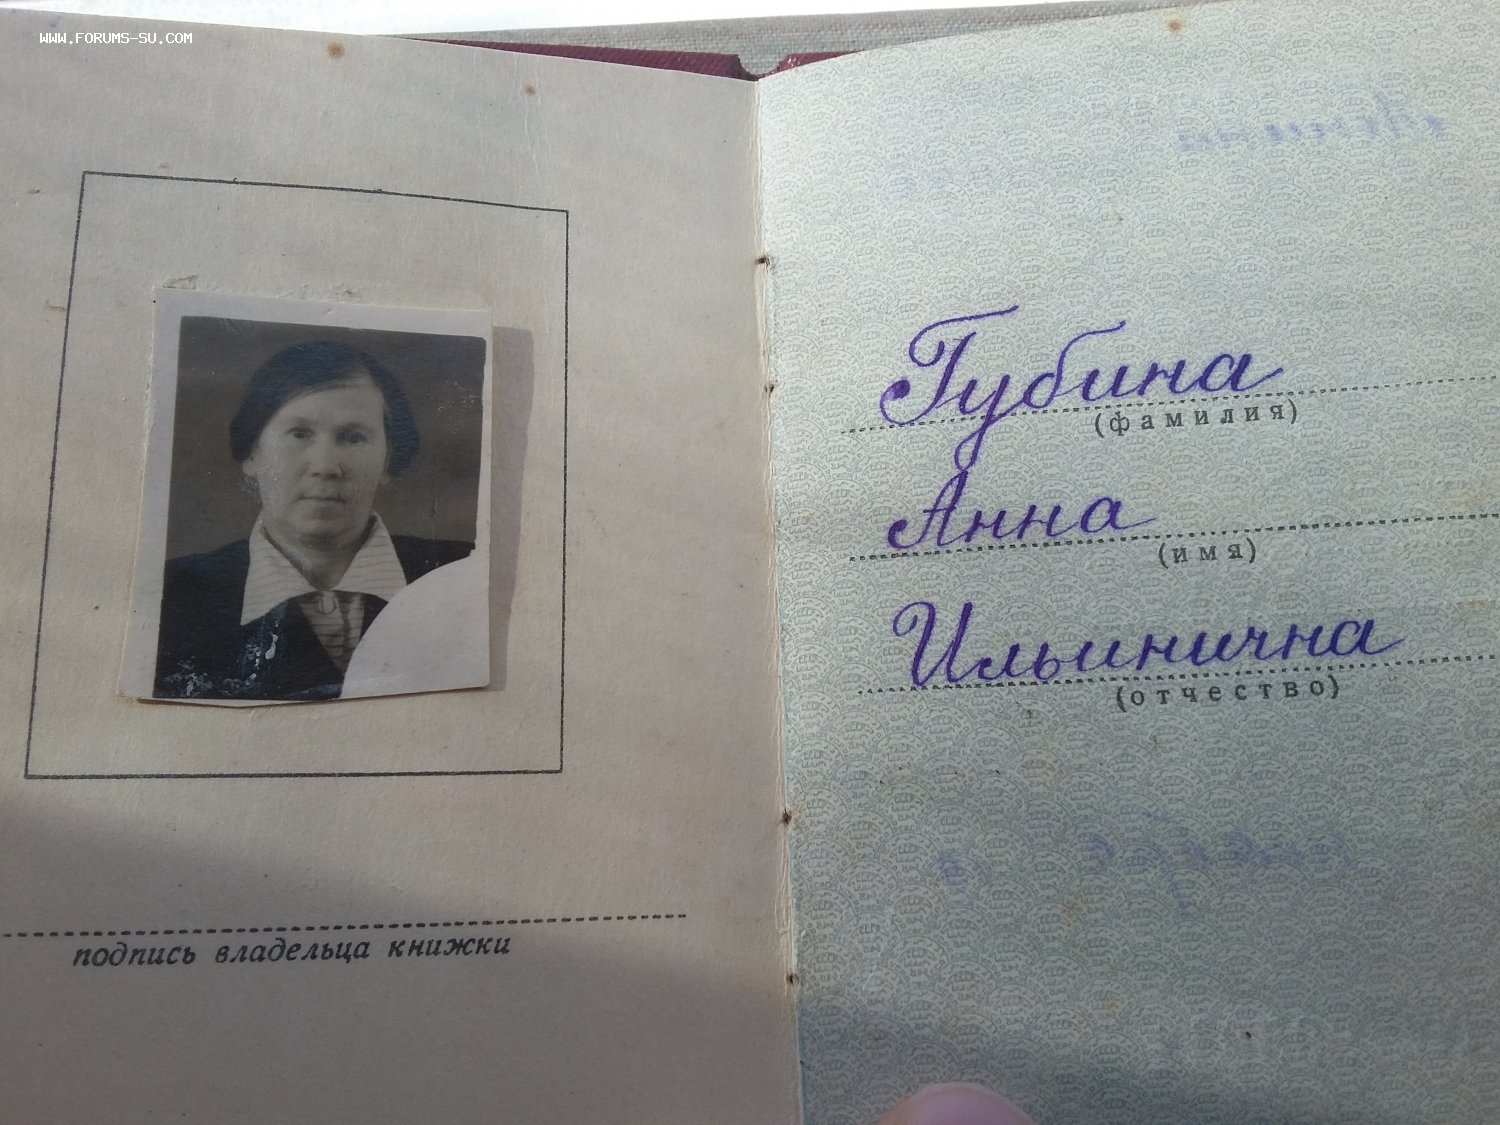 WWW.FORUMS-SU.COM
подпись владельца книжки
Губина
(фамилия)
Анна
(имя)
Ильинична
(отчество)